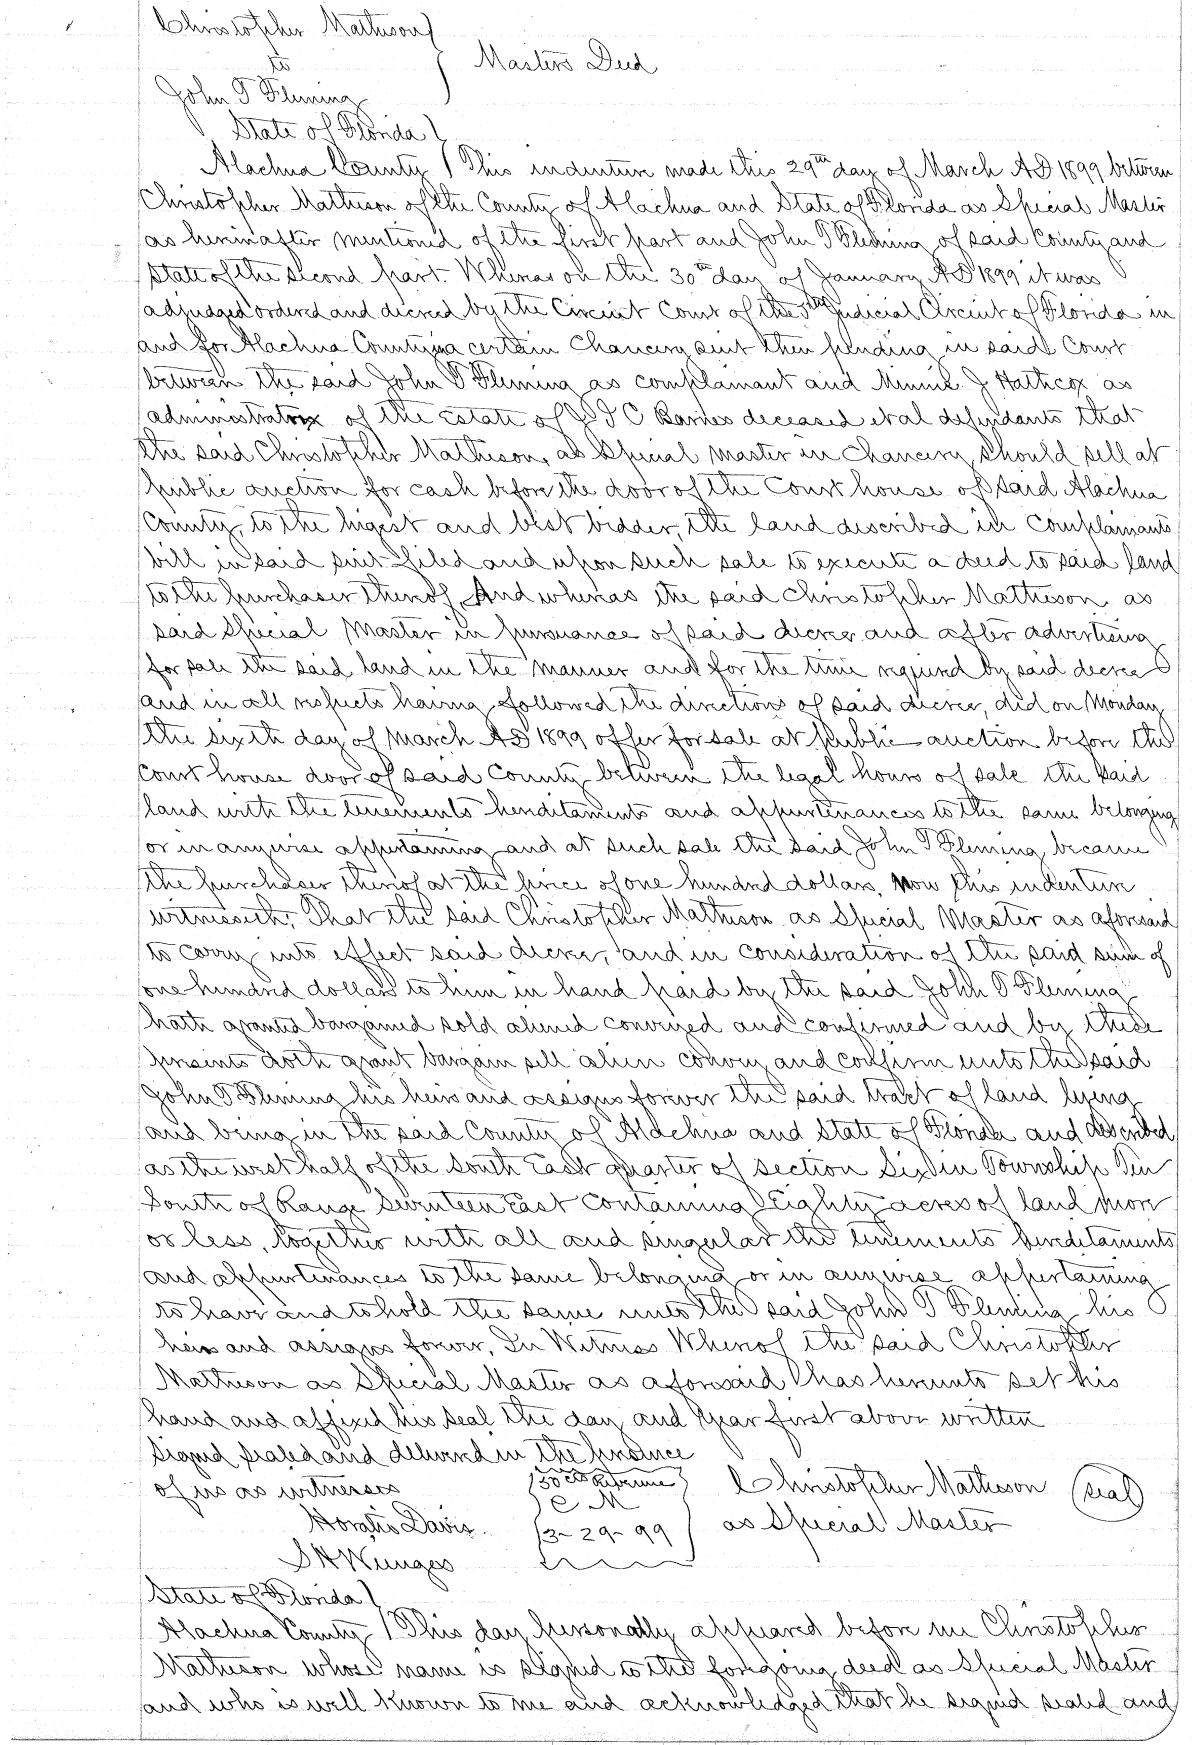 Christopher Matheson
to
Masters Deed
John T Fleming
State of Florida
Alachua County This indenture made this 29th day of March AD 1899 between
Christopher Matheson of the County of Alachua and State of Florida as Special Master
as herinafter mentioned of the first part and John T Fleming of said County and
State of the second part. Whereas on the 30th day of January AD 1899 it was
adjudged ordered and decreed by the Circuit Court of the 5th Judicial Circuit of Florida in
and for Alachua County in a certain Chancery suit then pending in said Court
between the said John T Fleming as complainant and Minnie J Hathcox as
administratrix of the Estate of C Barnes deceased et al defendants that
the said Christopher Matheson, as Special master in Chancery should sell at
public auction for cash before the door of the Court house of said Alachua
County, to the higest and best bidder, the land described in Complainants
bill in said suit filed and upon such sale to execute a deed to said land
to the purchaser thereof, And whereas the said Christopher Matheson as
said Special Master in pursuance of said decree and after advertising
for sale the said land in the manner and for the time required by said decree
and in all respects having followed the directions of said decree, did on Monday
the sixth day of March AD 1899 offer for sale at public auction before the
Court house door of said County between the legal hours of sale the said
land with the tenements hereditaments and appurtenances to the same belonging
or in anywise appertaining and at such sale the said John T Fleming became
the purchaser thereof at the price of one hundred dollars, Now this indenture
witnesseth, That the said Christopher Matheson as Special Master as aforesaid
to carry into effect said decree, and in consideration of the said sum of
one hundred dollars to him in hand paid by the said John T Fleming
hath granted bargained sold aliened conveyed and confirmed and by these
presents doth grant bargain sell alien convey and confirm unto the said
John T Fleming his heirs and assigns forever the said tract of land lying
and being in the said County of Alachua and State of Florida and described
as the west half of the South East quarter of section Six in Township Ten
South of Range Seventeen East Containing Eighty acres of land more
or less, together with all and singular the tenements hereditaments
and appurtenances to the same belonging or in anywise appertaining
to have and to hold the same unto the said John T Fleming his
heirs and assigns forever, In Witness Whereof the said Christopher
Matheson as Special Master as aforesaid has hereunto set his
hand and affixed his seal the day and year first above written
Signed sealed and delivered in the presence
of us as witnesses
Horatio Davis
50 cts Revenue
C M
3-29-99
Christopher Matheson (seal)
as Special Master
State of Florida
Alachua County This day personally appeared before me Christopher
Matheson whose name is signed to the foregoing deed as Special Master
and who is well known to me and acknowledged that he signed sealed and